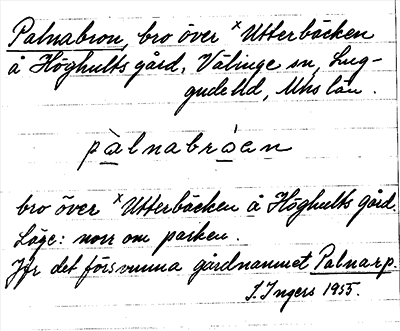 Palnabron, bro över ˣUtterbäcken
å Höghults gård, Välinge sn, Lug-
gude hd, Mhs län.
pàlnabróen
bro över ˣUtterbäcken å Höghults gård.
Läge: norr om parken.
Jfr det försvunna gårdnamnet Palnarp.
S. Ingers 1955.